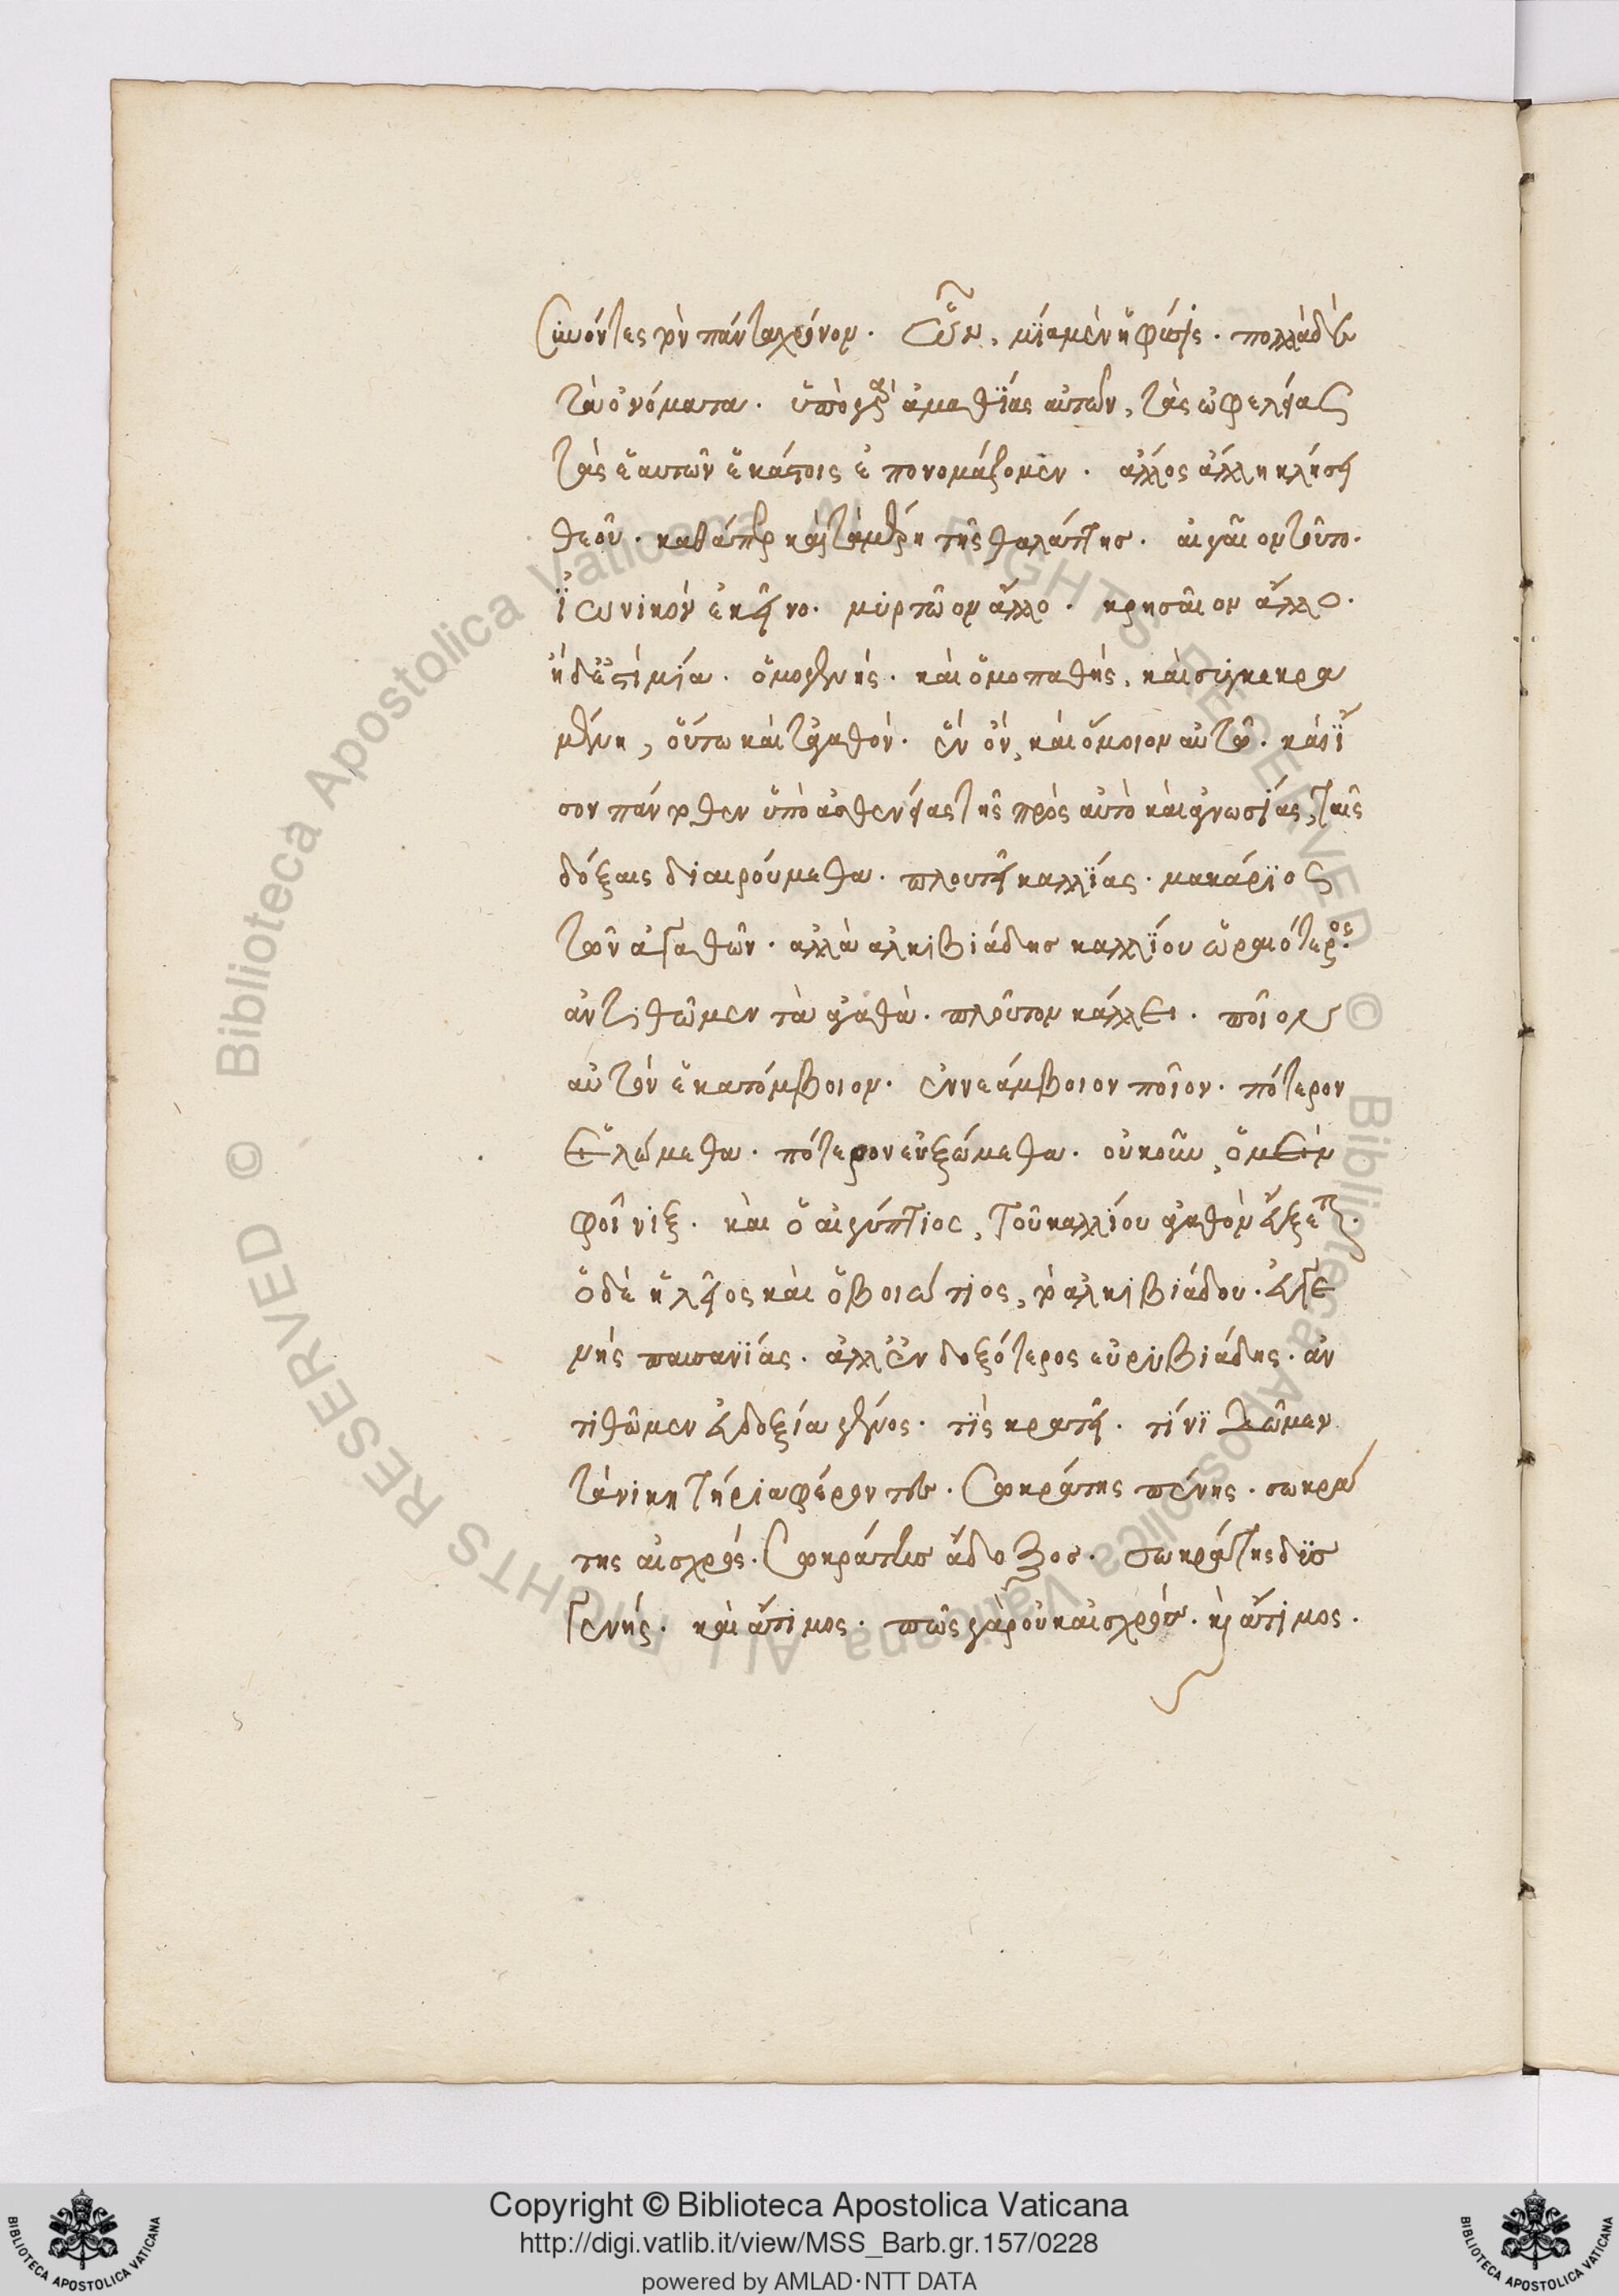 σιωόντες τὸν πάντα χρόνον. ὧν, μία μὲν ἡ φύσις. πολλὰ δὲ
τὰ ὀνόματα. ὑπὸ γὰρ ἀμαθίας αὐτῶν, τὰς ὠφελείας
τὰς ἑαυτῶν ἑκάστοις ἐπονομάζομεν. ἄλλος ἄλλη κλήσει
θεοῦ. καθάπερ καὶ τὰ μέρη τῆς θαλάττης. αἰγαῖον τοῦτο.
ἰωνικὸν ἐκεῖνο. μυρτῶον ἄλλο. κρησαῖον ἄλλο.
ἡ δὲ ἐστὶ μία. ὁμογενής. καὶ ὁμοπαθής. καὶ συγκεκρα
μένη, οὕτω καὶ τἀγαθόν. ἓν ὂν, καὶ ὅμοιον αὐτῷ. καὶ ἴ
σον πάντοθεν ὑπὸ ἀσθενείας τῆς πρὸς αὐτὸ καὶ ἀγνωσίας, ταῖς
δόξαις διαιρούμεθα. πλουτεῖ καλλίας. μακάριος
τῶν ἀγαθῶν. ἀλλὰ ἀλκιβιάδης καλλίου ὡραιότερος.
ἀντιθῶμεν τὰ ἀγαθὰ. πλοῦτον κάλλει. ποῖον
αὐτῶν ἑκατόμβοιον. ἐννεάμβοιον ποῖον. πότερον
ἑλώμεθα. πότερον εὐξώμεθα. οὐκοῦν, ὁ μὲν
φοῖνιξ. καὶ ὁ αἰγύπτιος, τοῦ καλλίου ἀγαθὸν εὔξεται.
ὁ δὲ ἠλεῖος καὶ ὁ βοιώτιος, τὸ ἀλκιβιάδου. εὐγε
νὴς παυσανίας. ἀλλ' ἐνδοξότερος εὐρυβιάδης. ἀν
τιθῶμεν εὐδοξία γένος. τίς κρατεῖ. τίνι δῶμεν
τὰ νικητήρια φέροντες. σωκράτης πένης. σωκρά
της αἰσχρός. σωκράτης ἄδοξος. σωκράτης δυσ
γενής. καὶ ἄτιμος. πῶς γὰρ οὐκ αἰσχρός. καὶ ἄτιμος.
Copyright © Biblioteca Apostolica Vaticana
http://digi.vatlib.it/view/MSS_Barb.gr.157/0228
powered by AMLAD·NTT DATA
BIBLIOTECA APOSTOLICA VATICANA
BIBLIOTECA APOSTOLICA VATICANA
© Biblioteca Apostolica Vaticana ALL RIGHTS RESERVED
© Biblioteca Apostolica Vaticana ALL RIGHTS RESERVED